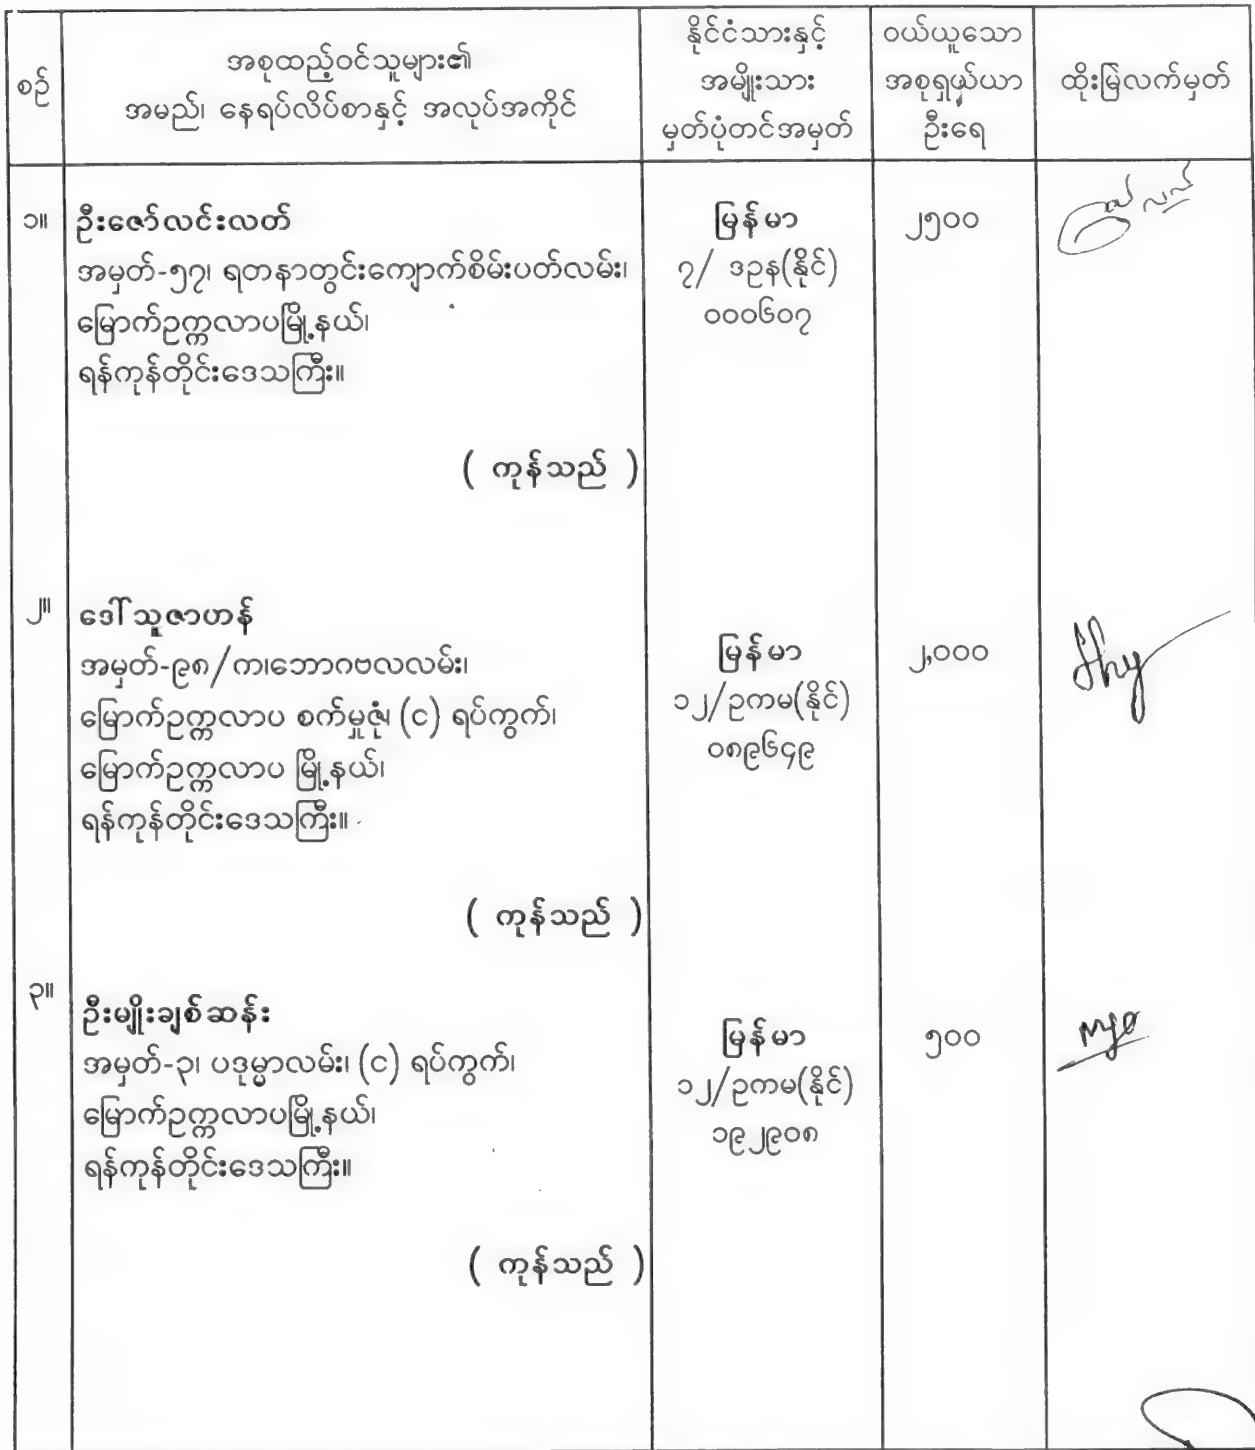 စဉ်
အစုထည့်ဝင်သူများ၏
အမည်၊ နေရပ်လိပ်စာနှင့် အလုပ်အကိုင်
နိုင်ငံသားနှင့်
အမျိုးသား
မှတ်ပုံတင်အမှတ်
ဝယ်ယူသော
အစုရှယ်ယာ
ဦးရေ
ထိုးမြဲလက်မှတ်
၁။
ဦးဇော်လင်းလတ်
အမှတ်-၅၇၊ ရတနာတွင်းကျောက်စိမ်းပတ်လမ်း၊
မြောက်ဥက္ကလာပမြို့နယ်၊
ရန်ကုန်တိုင်းဒေသကြီး။
( ကုန်သည် )
မြန်မာ
၇/ ဒဥန(နိုင်)
၀၀၀၆၀၇
၂၅၀၀
၂။
ဒေါ်သူဇာဟန်
အမှတ်-၉၈/က၊ဘောဂဗလလမ်း၊
မြောက်ဥက္ကလာပ စက်မှုဇုံ၊ (င) ရပ်ကွက်၊
မြောက်ဥက္ကလာပ မြို့နယ်၊
ရန်ကုန်တိုင်းဒေသကြီး။
( ကုန်သည် )
မြန်မာ
၁၂/ဥကမ(နိုင်)
၀၈၉၆၄၉
၂,၀၀၀
၃။
ဦးမျိုးချစ်ဆန်း
အမှတ်-၃၊ ပဒုမ္မာလမ်း၊ (င) ရပ်ကွက်၊
မြောက်ဥက္ကလာပမြို့နယ်၊
ရန်ကုန်တိုင်းဒေသကြီး။
( ကုန်သည် )
မြန်မာ
၁၂/ဥကမ(နိုင်)
၁၉၂၉၀၈
၅၀၀
myo